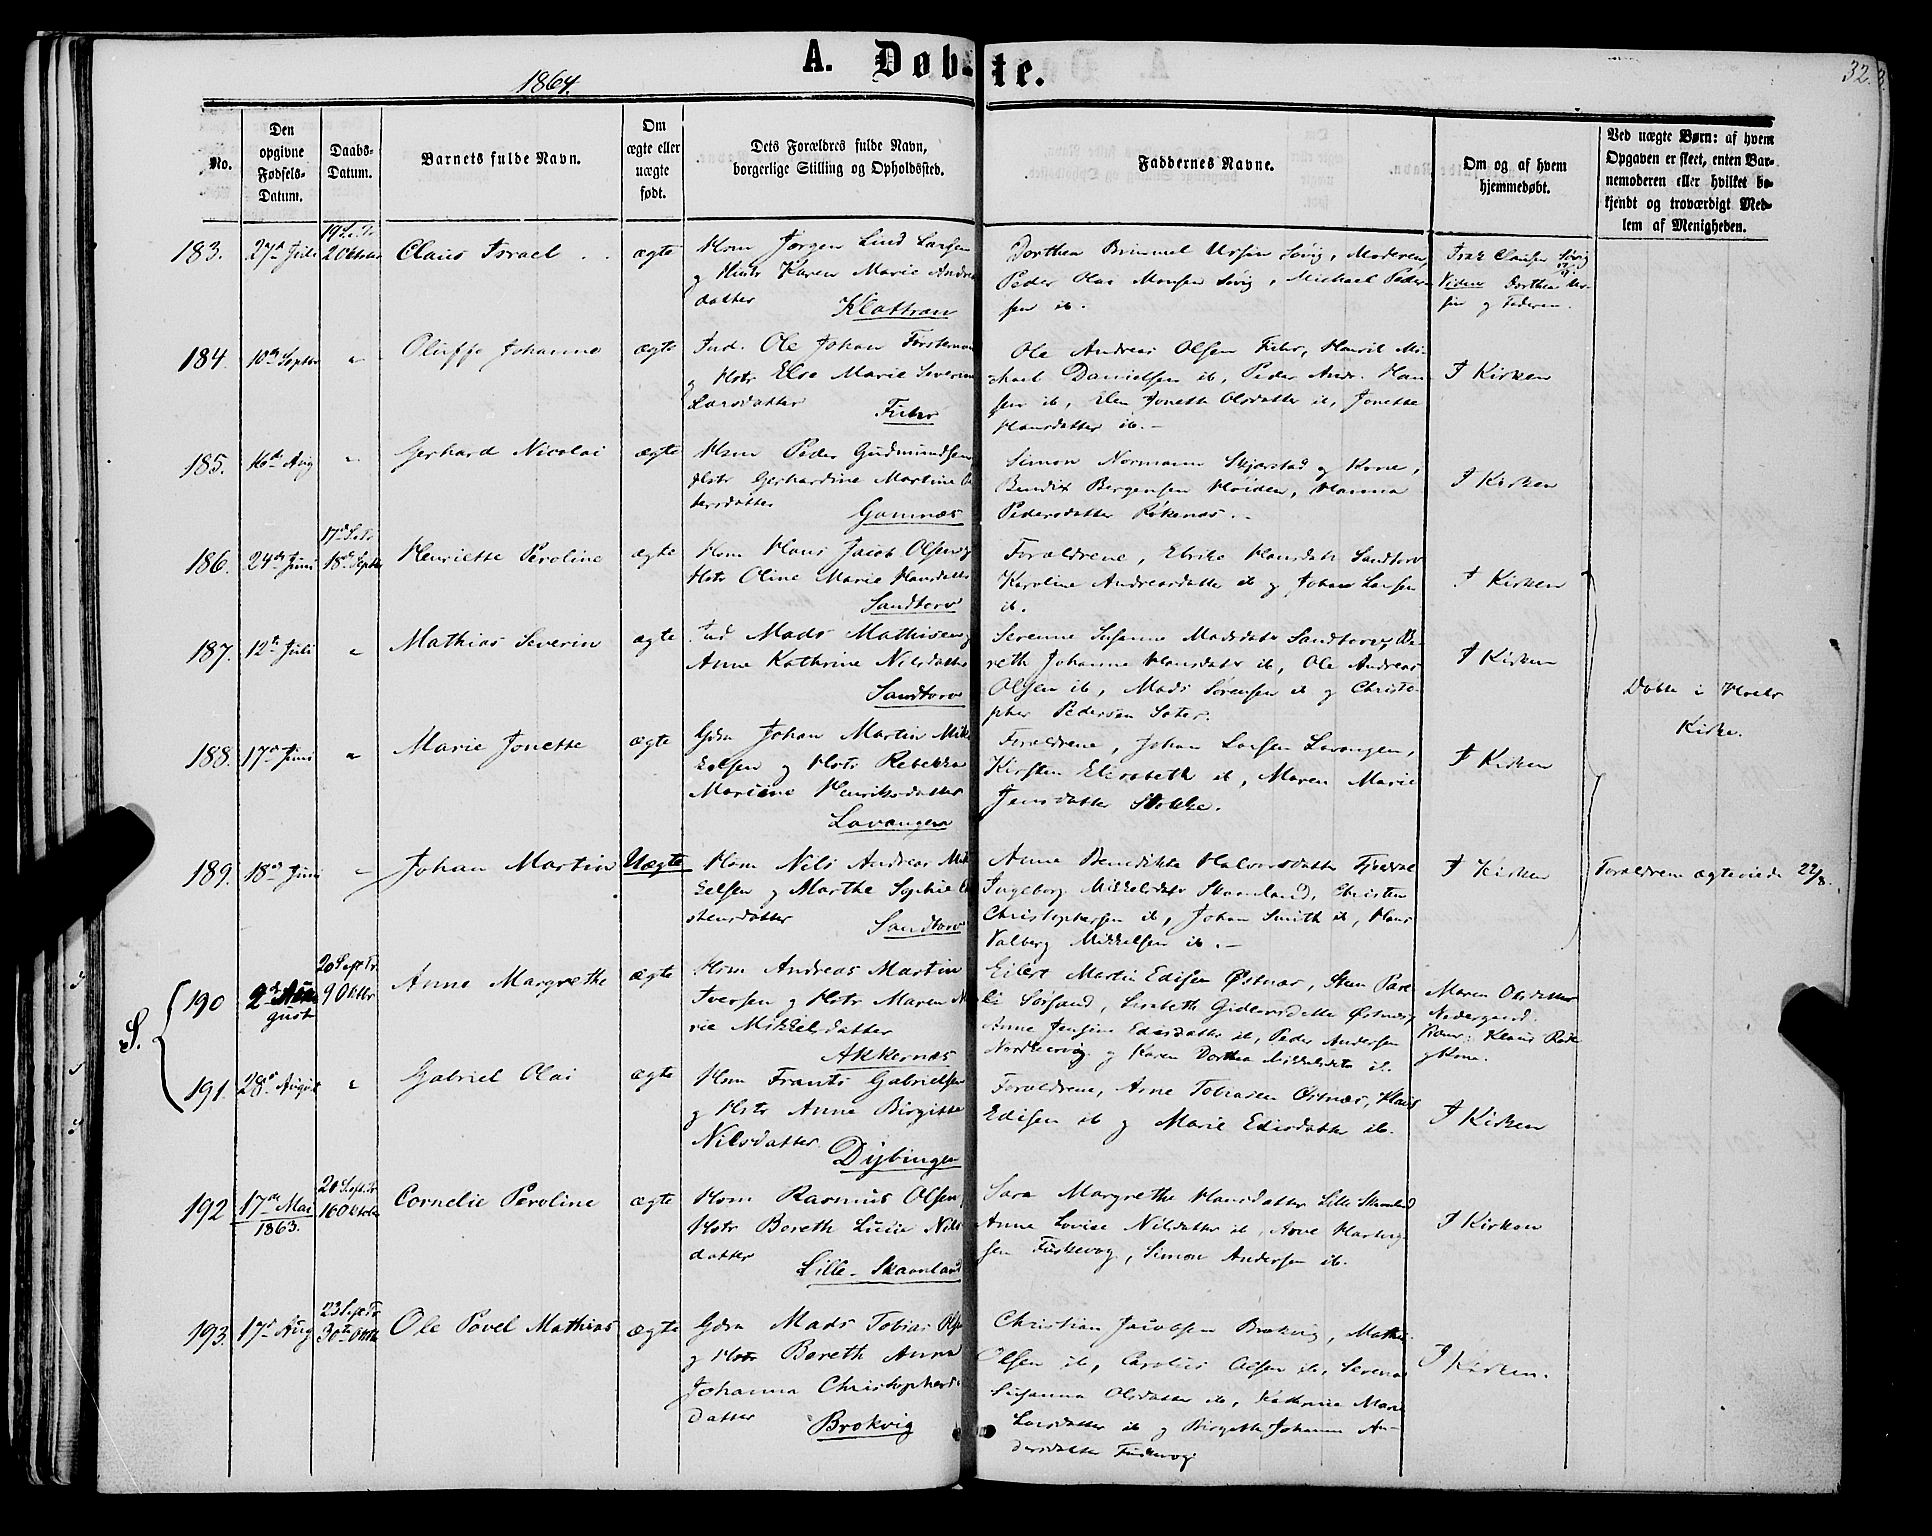 A. Døbte.
1864.
32.
No.
Den
opgivne
Fødsels-
Datum.
Daabs-
Datum.
Barnets fulde Navn.
Om
ægte eller
uægte
født.
Dets Forældres fulde Navn,
borgerlige Stilling og Opholdssted.
Faddernes Navne.
Om og af hvem
hjemmedøbt.
Ved uægte Børn: af hvem
Opgaven er skeet, enten Bar-
nemoderen eller hvilket be-
kjendt og troværdigt Med-
lem af Menigheden.
183. 27de Juli 2 Oktober Claus Israel ægte
Hsm Jørgen Lind Larsen
og Hustr Karen Marie Andrea
datter Klottran
Dorthea Brimmel Ursin Søvig, Moderen,
Peder Olai Monsen Søvig, Michael Peder-
sen ib.
Clausen Søvig
Viden Dorthea Ur-
sin og Faderen
184. 10de Septbr " Oluffa Johanna ægte
Ind. Ole Johan
og Hstr Else Marie Severine
Larsdatter
Ole Andreas Olsen, Henrik Mi-
chael Danielsen ib, Peder Andr. Han-
sen ib, Elen Jonetta Olsdatter ib, Jonette
Hansdatter ib.-
I Kirken
185. 16de Aug " Gerhard Nicolai ægte
Hsm Peder Gudmundsen
Hstr Gerhardine Martine Pe
tersdatter Gamnæs
Simon Normann Skjærstad og Kone,
Bendix Bergersen, Hanna
Pedersdatter Røkenæs.-
I Kirken
186. 24de Juni 17de S. e. Tr. 18de Septbr Henriette Peroline ægte
Hsm Hans Jacob Olsen og
Hstr Oline Marie Hansdatter
Sandtorv
Forældrene, Ulrike Hansdatr Sandtorv
Karoline Andreasdatter ib og Johan Larsen
ib.
I Kirken
187. 12te Juli " Mathias Severin ægte
Ind Mads Mathisen og
Anne Kathrine Nilsdatter
Sandtorv
Serenne Susanne Madsdatr Sandtorv, Be-
reth Johanna Hansdatr ib, Ole Andreas
Olsen ib, Mads Sørensen ib og Christo-
pher Pedersen
I Kirken
Døbte i Hols
Kirke.
188. 17de Juni " Marie Jonette ægte
Gdm Johan Martin Mik
kelsen og Hstr Rebekka
Mariane Henriksdatter
Lavangen
Forældrene, Johan Larsen Lavangen,
Kirsten Elisabeth ib, Maren Marie
Jensdatter Stokke.
I Kirken
189. 18de Juni " Johan Martin Uægte
Hsm Nils Andreas Mik
kelsen og Marthe Sophie
stensdatter Sandtorv
Anne Benedikte Halvorsdatter
Ingeborg Mikkelsdatr Skaanland, Christen
Christophersen ib, Johan Smith ib, Hans
Valberg Mikkelsen ib.-
I Kirken
Forældrene ægteviede 22/8.
S.
190 2den August 20 S. e. Tr. 9 Oktbr Anne Margrethe ægte
Hsm Andreas Martin
Iversen og Hstr Maren Ma
rie Mikkelsdatter
Akkernæs
Eilert Martin Edisen Østnæs, Sten Pave-
li Sørsand, Lisabeth Gidionsdatter Østnæs,
Anne Jensine Edisdatter ib, Peder Andersen
og Karen Dorthea Mikkelsdatr ib.
Maren Olsdatter
Nedergaard.
Klaus
og Kone.
191. 28de August " Gabriel Olai ægte
Hsm Frants Gabrielsen
og Hstr Anne Birgitte
Nilsdatter Dybingen
Forældrene, Arne Tobiasen Østnæs, Hans
Edisen ib og Marie Edisdatter ib.
I Kirken
192 17de Mai 1863. 16 Oktober Cornelie Peroline ægte
Hsm Rasmus Olsen,
Hstr Bereth Lucie Nils
datter
Lille-Skaanland
Sara Margrethe Hansdatter Lille Skaanland
Anne Lovise Nilsdatter ib, Arne Hartvig-
sen Fuskevog, Simon Andersen ib.
I Kirken
193. 17de Aug 23 S. e. Tr. 30te Oktbr Ole Povel Mathias ægte
Gdm Mads Tobias Olsen
og Hstr Bereth Anna
Johanna Christophersd
datter Brokvig
Christian Jacobsen Brokvig, Mathis
Olsen ib, Carolius Olsen ib, Serena
Susanna Olsdatter ib, Kathrine Marie
Larsdatter ib og Birgitte Johanna An-
dersdatter Fuskevog
I Kirken.